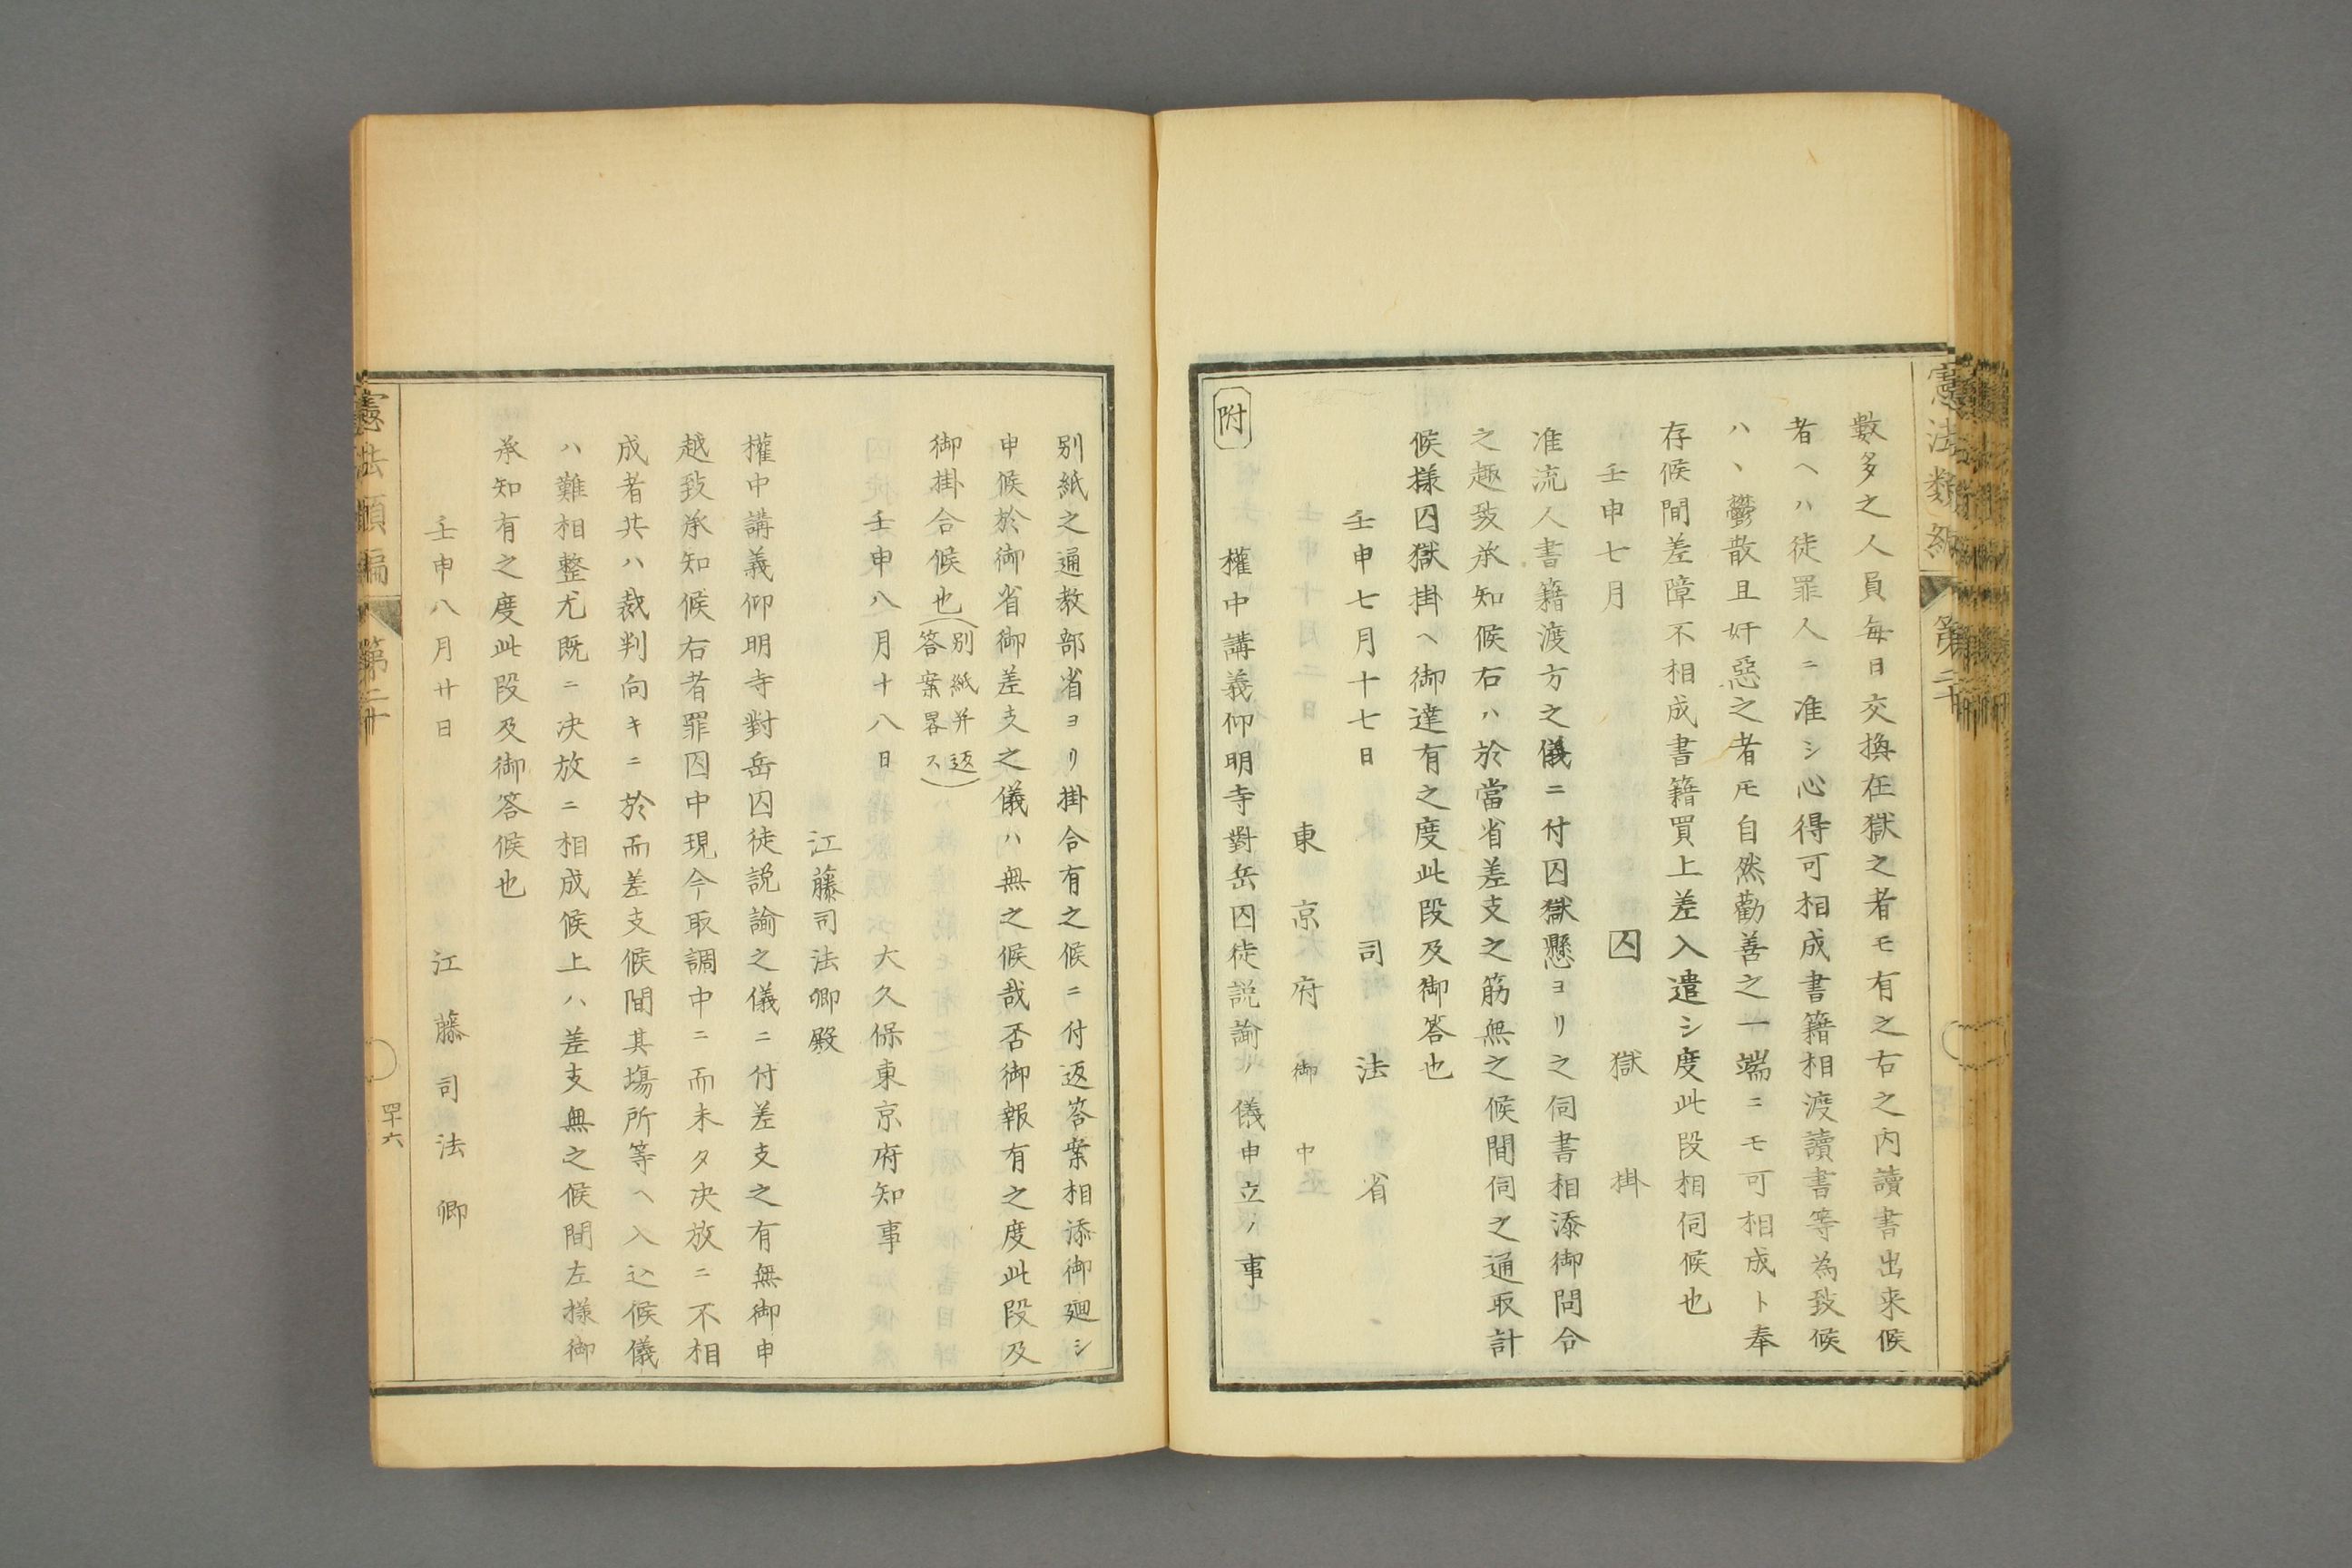 數多之人員每日交換在獄之者モ有之右之內讀書出来候
者ヘハ徒罪人ニ准シ心得可相成書籍相渡讀書等為致候
ハヽ鬱散且奸惡之者モ自然勸善之一端ニモ可相成ト奉
存候間差障不相成書籍買上差入遣シ度此段相伺候也
壬申七月 囚獄掛
准流人書籍渡方之儀ニ付囚獄懸ヨリ之伺書相添御問合
之趣致承知候右ハ於當省差支之筋無之候間伺之通取計
候様囚獄掛ヘ御達有之度此段及御答也
壬申七月十七日 司法省
東京府御中
附 權中講義仰明寺對岳囚徒説諭ノ儀申立ノ事
憲法類編 第二十
別紙之通教部省ヨリ掛合有之候ニ付返答案相添御廻シ
申候於御省御差支之儀ハ無之候哉否御報有之度此段及
御掛合候也(別紙并返答案畧ス)
壬申八月十八日 大久保東京府知事
江藤司法卿殿
權中講義仰明寺對岳囚徒説諭之儀ニ付差支之有無御申
越致承知候右者罪囚中現今取調中ニ而未タ決放ニ不相
成者共ハ裁判向キニ於而差支候間其塲所等ヘ入込候儀
ハ難相整尤既ニ决放ニ相成候上ハ差支無之候間左様御
承知有之度此段及御答候也
壬申八月廿日 江藤司法卿
憲法類編 第二十 四十六